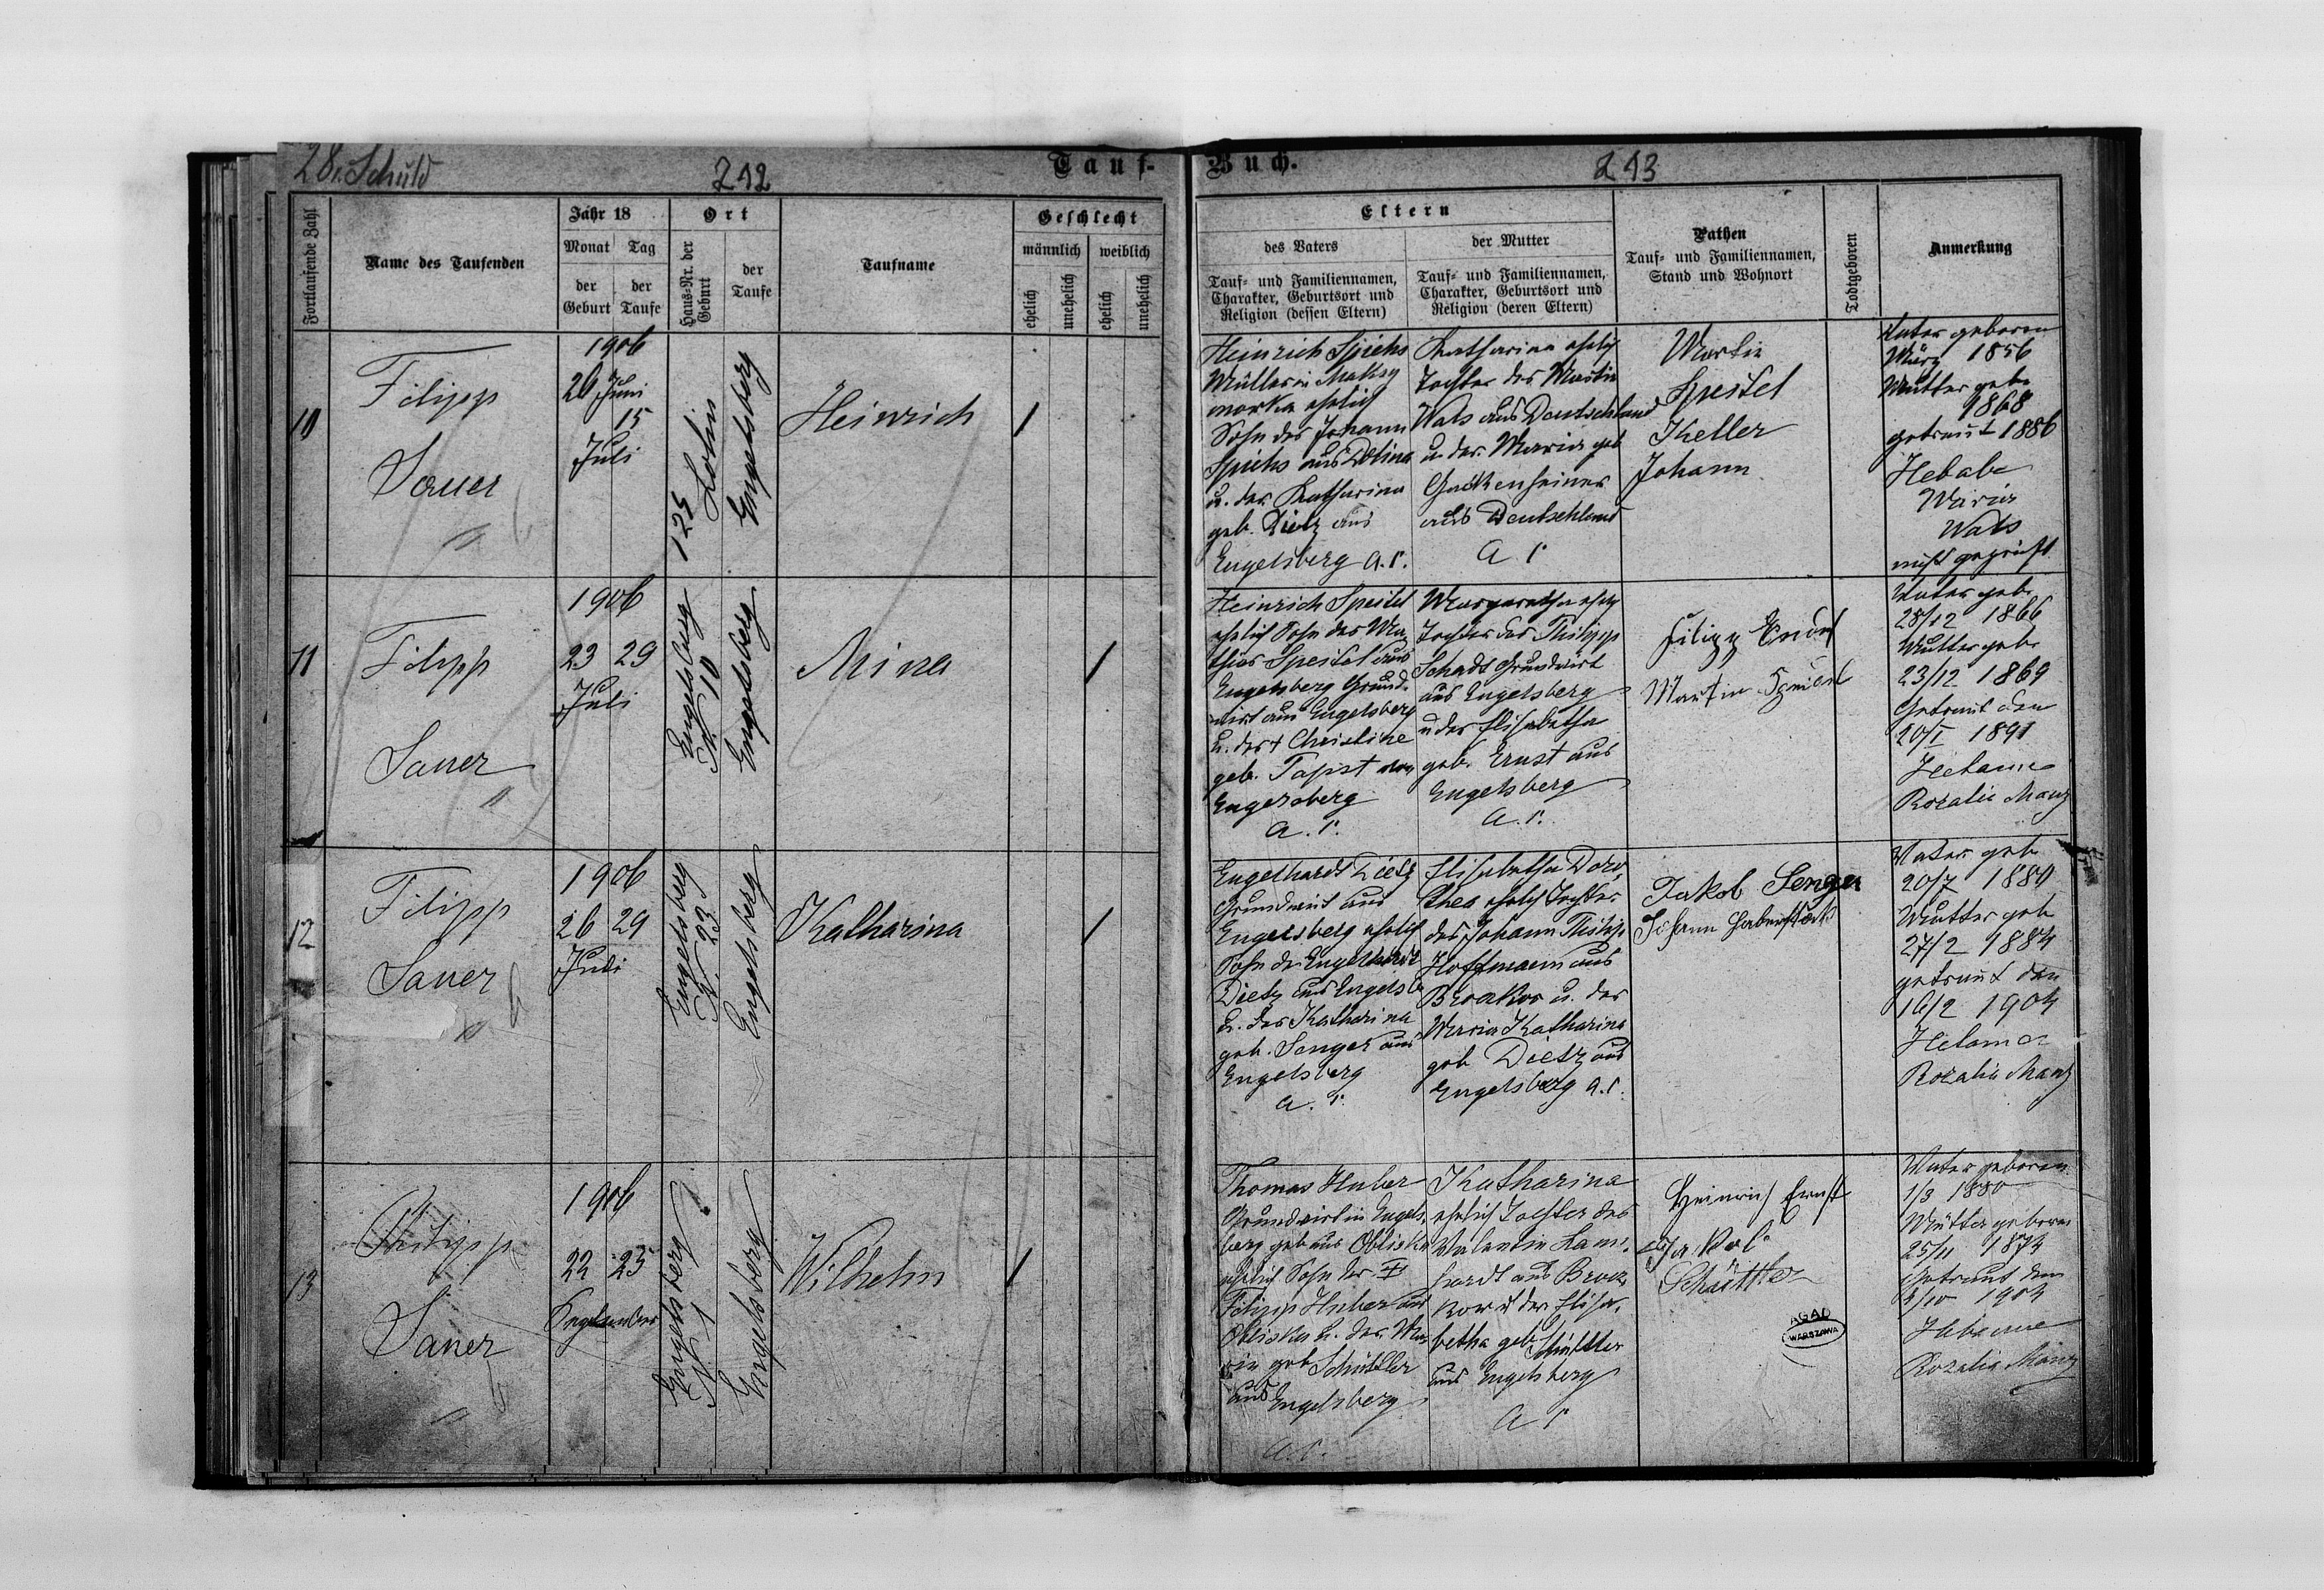 28. Schuld
212
Tauf-
Buch.
213
Fortlaufende Zahl
Name des Taufenden
Jahr 18
Monat
Tag
der Geburt
der Taufe
Ort
Haus-Nr. der Geburt
der Taufe
Taufname
Geschlecht
männlich
weiblich
ehelich
unehelich
ehelich
unehelich
Eltern
des Vaters
Tauf- und Familiennamen,
Charakter, Geburtsort und
Religion (dessen Eltern)
der Mutter
Tauf- und Familiennamen,
Charakter, Geburtsort und
Religion (deren Eltern)
Pathen
Tauf- und Familiennamen,
Stand und Wohnort
Todtgeboren
Anmerkung
10
Filipp
Sauer
1906
26 Juni
15
Juli
125
Engelsberg
Heinrich
Heinrich Spiehs
Müller in
ehelich
Sohn des Johann
Spiehs aus Dolina
u. der Katharina
geb. Dietz aus
Engelsberg a. C.
Katharina ehelich
Tochter des Martin
Wals aus Deutschland
u. der Maria geb
aus Deutschland
a C
Martin
Speitel
Keller
Johann
Vater geboren
März 1856
Mutter geb.
1868
getraut 1886
Maria
Wals
nicht geprüft
11
Filipp
Sauer
1906
23 29
Juli
Engelsberg
N. 10
Engelsberg
Mina
Heinrich Speitel
ehelich Sohn des Ma
thias Speitel aus
Engelsberg Grund-
wirt aus Engelsberg
u. der + Christine
geb. aus
Engelsberg
a. C.
Margaretha ehelich
Tochter des Philipp
Schadt Grundwirt
aus Engelsberg
u der Elisabetha
geb. Ernst aus
Engelsberg
a. C.
Filipp
Martin
Vater geb.
28/12 1866
Mutter geb.
23/12 1869
Getraut den
20/I 1891
Hebamme
Rozalie Manz
12
Filipp
Sauer
1906
26 29
Juli
Engelsberg
N. 23
Engelsberg
Katharina
Engelhardt Dietz
Grundwirt aus
Engelsberg ehelich
Sohn des Engelhardt
Dietz aus Engelsb
u. der Katharina
geb. Senger aus
Engelsberg
a. C.
Elisabetha Doro-
thea ehelich Tochter
des Johann Philipp
Hoffmann aus
u. der
Maria Katharina
geb Dietz aus
Engelsberg a. C.
Jakob Senger
Johann Haberstock
Vater geb
20/7 1880
Mutter geb
27/2 1884
getraut den
16/2 1904
Rozalia Manz
13
Philipp
Sauer
1906
22 25
September
Engelsberg
N 1
Engelsberg
Wilhelm
Thomas Huber
Grundwirt in Engels-
berg geb aus Obliska
ehelich Sohn des
Filipp Huber aus
Obliska u. der Ma
ria geb Schüttler
aus Engelsberg
a. C.
Katharina
ehelich Tochter des
Valentin Lam-
hardt aus
u der Elisa-
betha geb Schüttler
aus Engelsberg
a C
Heinrich Ernst
Jakob
Schüttler
AGAD
WARSZAWA
Vater geboren
1/3 1880
Mutter geboren
25/11 1874
Getraut den
4/10 1904
Hebamme
Rozalia Manz